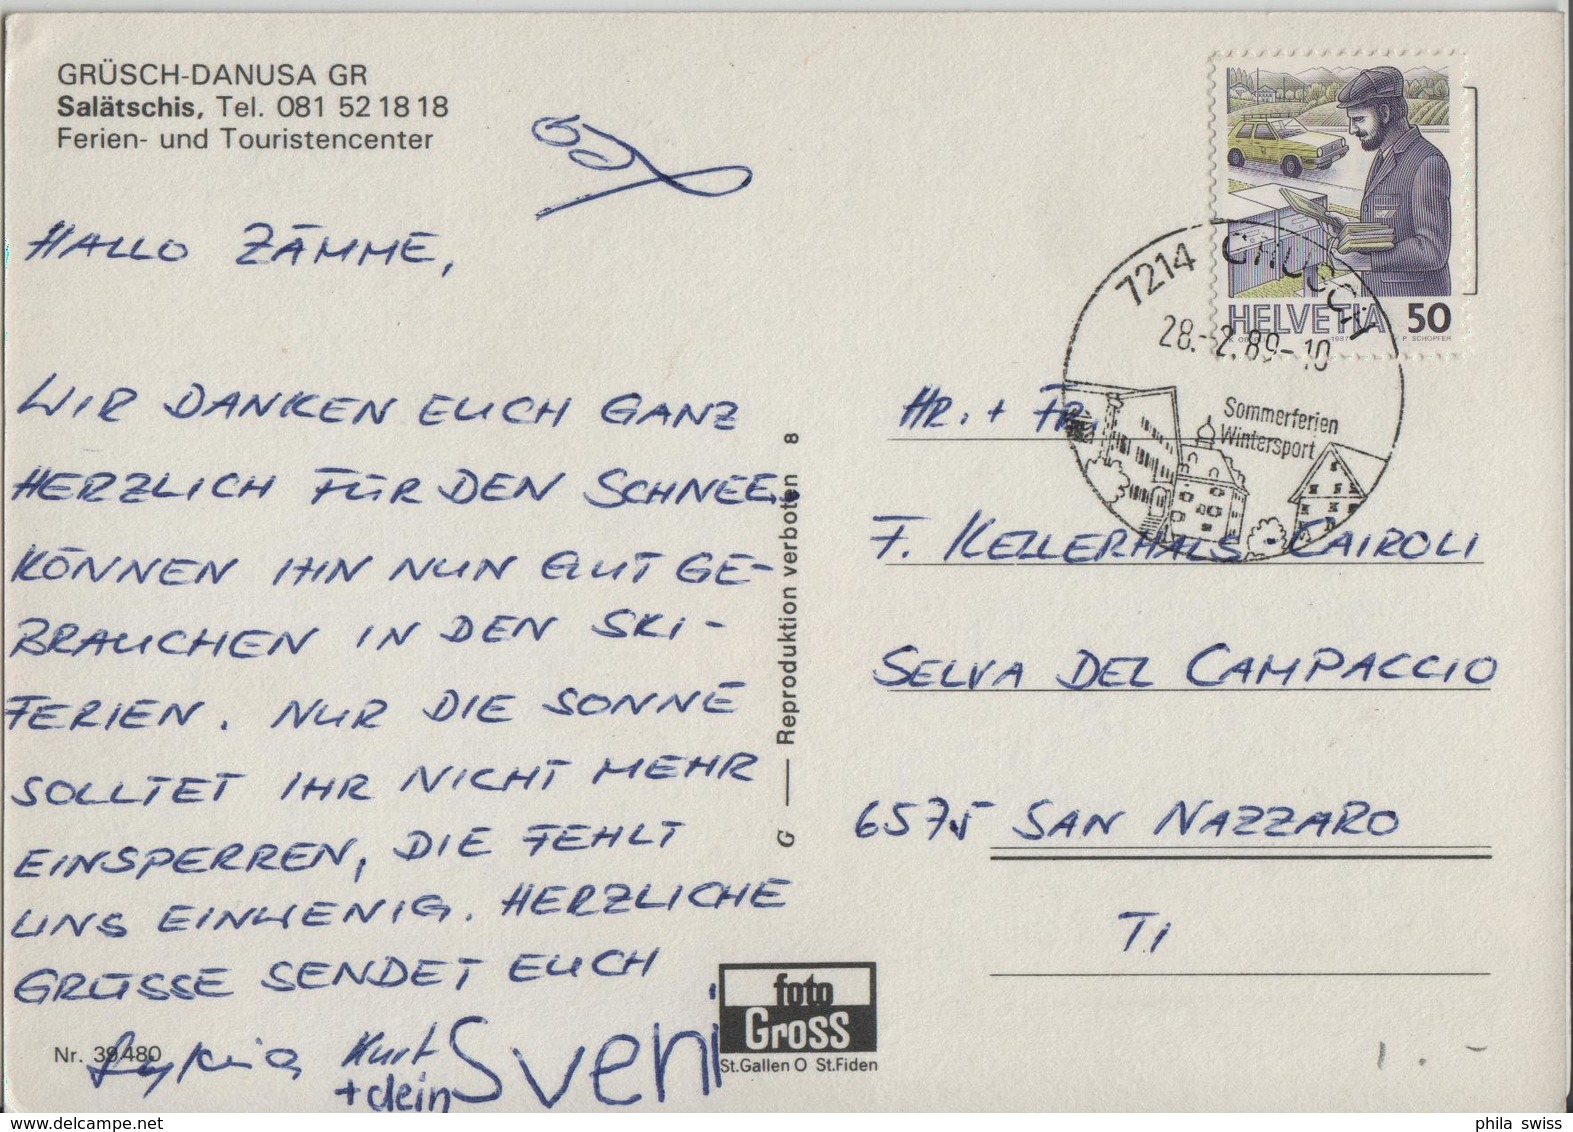 GRÜSCH-DANUSA GR
Salätschis, Tel. 081 52 18 18
Ferien- und Touristencenter
HALLO ZÄMME,
WIR DANKEN EUCH GANZ
HERZLICH FÜR DEN SCHNEE,
KÖNNEN IHN NUN GUT GE-
BRAUCHEN IN DEN SKI-
FERIEN. NUR DIE SONNE
SOLLTET IHR NICHT MEHR
EINSPERREN, DIE FEHLT
UNS EINWENIG. HERZLICHE
GRÜSSE SENDET EUCH
Kurt
+ dein Sveni
Nr. 39480
G — Reproduktion verboten 8
foto
Gross
St.Gallen O St.Fiden
HELVETIA 50
1987 P. SCHOPFER
7214 GRÜSCH
28.-2.89-10
Sommerferien
Wintersport
HR. + FR.
F. KELLERHALS-CAIROLI
SELVA DEL CAMPACCIO
6575 SAN NAZZARO
TI
1.-
phila swiss